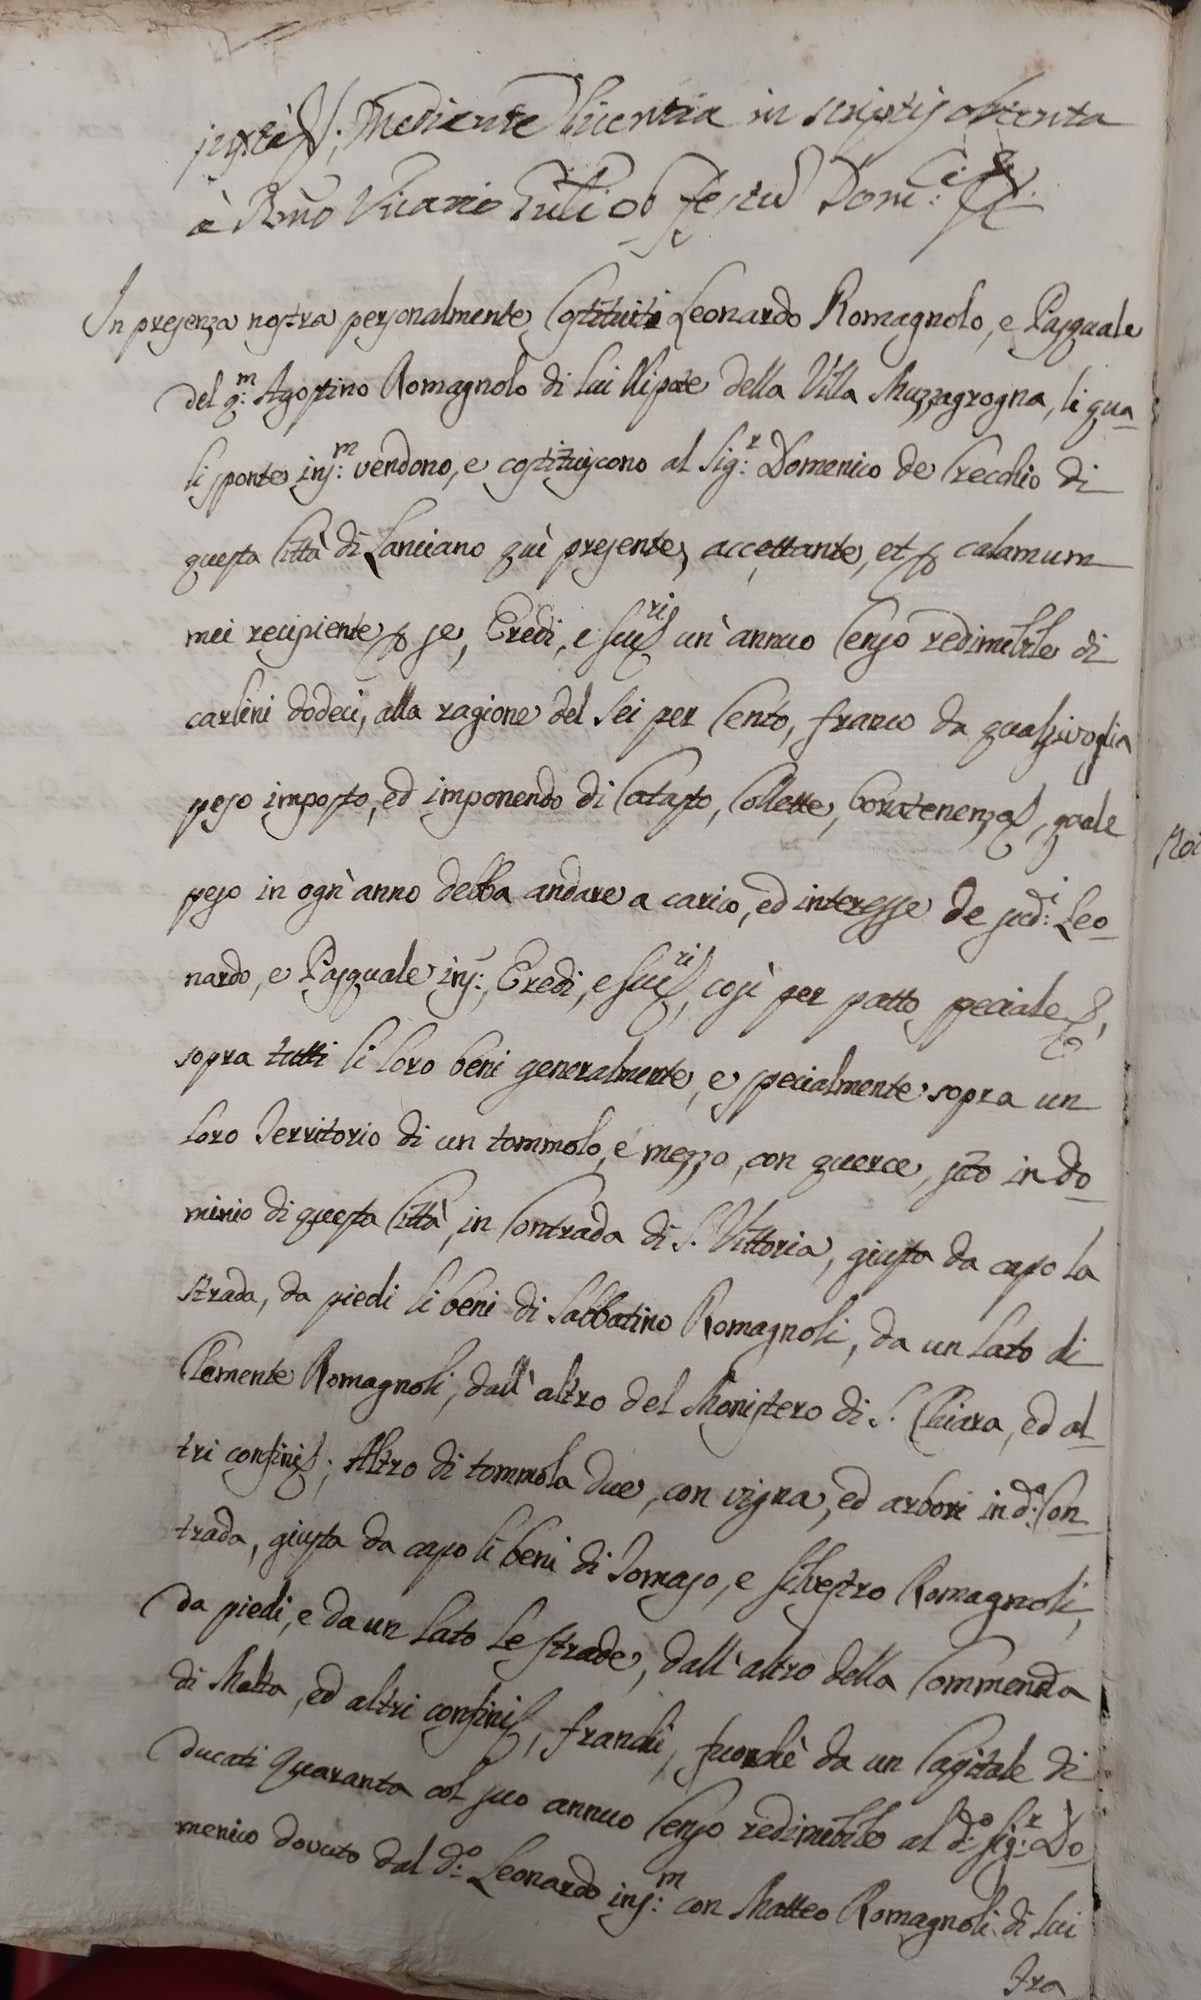 Mediante licentia in scriptis obtenta
à Vicario ob festu Domci:
In presenza nostra personalmente Costituiti Leonardo Romagnolo, e Pasquale
del q:m Agostino Romagnolo di lui Nipote della Villa Mazzagrogna, li qua-
li sponte ins:m vendono, e costituiscono al Sig:r Domenico de Crecchio di
questa Città di Lanciano quì presente, accettante, et calamum
mei recipiente se, Eredi, e un' annuo Censo redimibile di
carlini dodeci, alla ragione del sei per Cento, franco da qualsivoglia
peso imposto, ed imponendo di Catasto, Collette, Bonatenenza, quale
peso in ogn' anno debba andare a carico, ed interesse de sud:i Leo-
nardo, e Pasquale ins:, Eredi, e così per patto speciale
sopra tutti li loro beni generalmente, e specialmente sopra un
loro Territorio di un tommolo, e mezzo, con querce, sito in do-
minio di questa Città, in Contrada di S. Vittoria, giusta da capo la
strada, da piedi li beni di Sabbatino Romagnoli, da un lato di
Clemente Romagnoli, dall' altro del Monistero di S. Chiara, ed al-
tri confini; Altro di tommola due, con vigna, ed arbori in d:a Con-
trada, giusta da capo li beni di Tomaso, e Silvestro Romagnoli,
da piedi, e da un lato le strade, dall' altro della Commenda
di Malta, ed altri confini, franchi, fuorchè da un Capitale di
ducati Quaranta col suo annuo Censo redimibile al d:o Sig:r Do-
menico dovuto dal d:o Leonardo ins:m con Matteo Romagnoli di lui
Fra